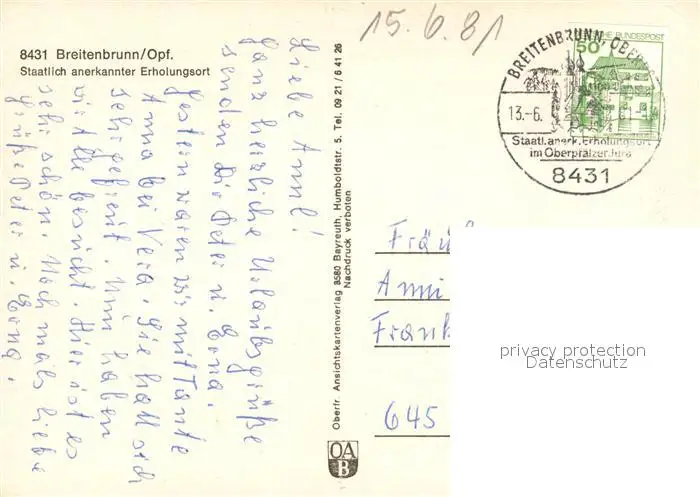 15.6.81
8431 Breitenbrunn/Opf.
Staatlich anerkannter Erholungsort
Liebe Anni!
Ganz herzliche Urlaubsgrüße
senden Dir Peter u. Erna.
Gestern waren wir mit Tante
Anna bei Vera. Sie hat sich
sehr gefreut. Nun haben
wir alle besucht. Hier ist es
sehr schön. Nochmals liebe
Grüße Peter u. Erna.
Oberfr. Ansichtskartenverlag 8580 Bayreuth, Humboldtstr. 5. Tel. 09 21 / 6 41 26
Nachdruck verboten
OA
B
BREITENBRUNN, OBER
13.-6. 81.-
Staatl. anerk. Erholungsort
im Oberpfälzer Jura
8431
50
HE BUNDESPOST
Fräul
Anni
Frank
645
privacy protection
Datenschutz